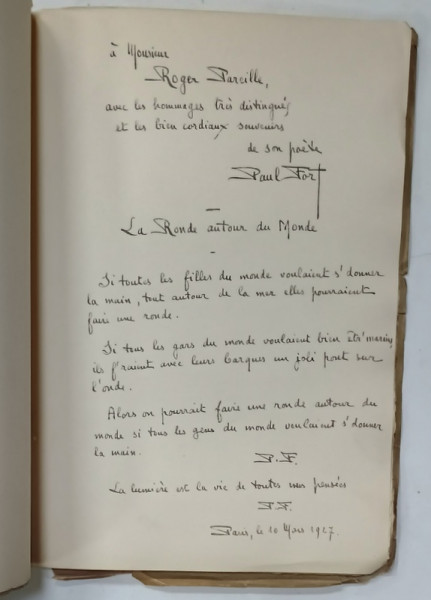 à Monsieur
Roger Pareille,
avec les hommages très distingués
et les bien cordiaux souvenirs
de son poète
Paul Fort
La Ronde autour du Monde
Si toutes les filles du monde voulaient s'donner
la main, tout autour de la mer elles pourraient
faire une ronde.
Si tous les gars du monde voulaient bien êtr' marins,
ils f'raient avec leurs barques un joli pont sur
l'onde.
Alors on pourrait faire une ronde autour du
monde si tous les gens du monde voulaient s'donner
la main.
P.F.
La lumière est la vie de toutes mes pensées
P.F.
Paris, le 20 Mars 1927.